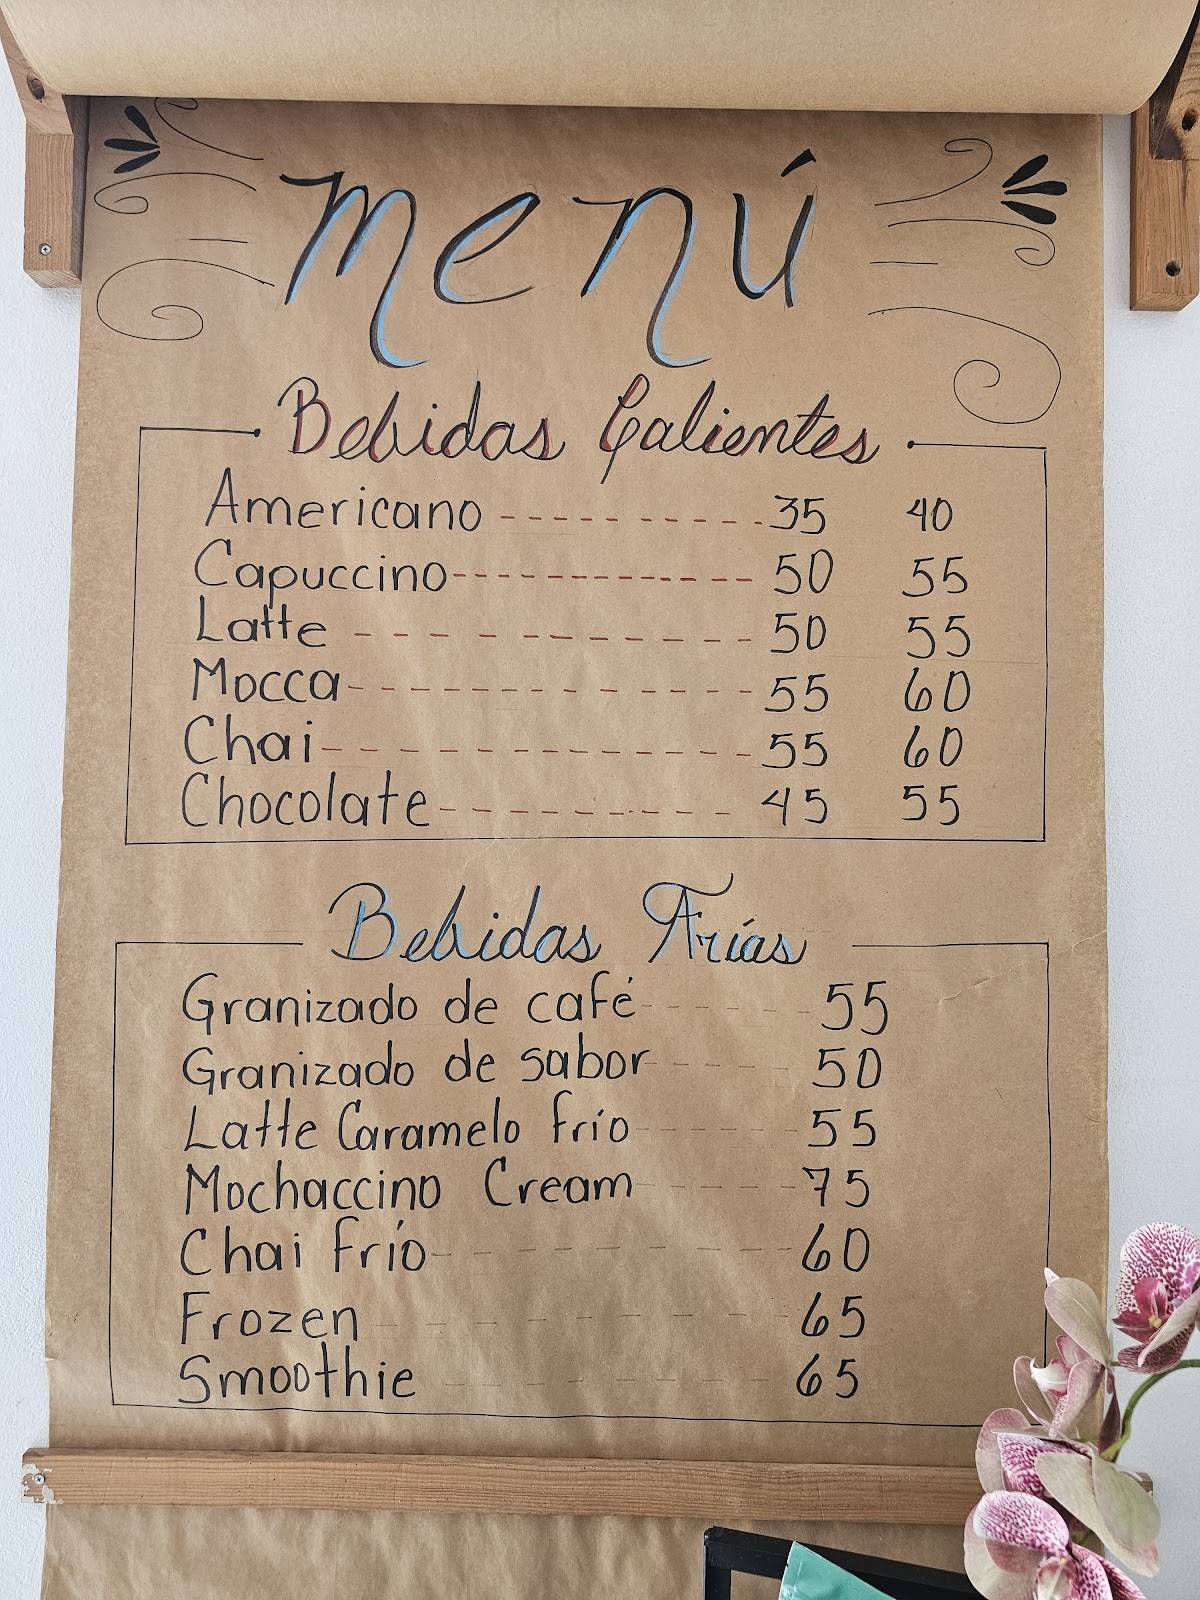 menú
Bebidas Calientes
Americano ----------- 35 40
Capuccino ------------ 50 55
Latte ----------- 50 55
Mocca ------------- 55 60
Chai -------------- 55 60
Chocolate ----------- 45 55
Bebidas Frías
Granizado de café ------ 55
Granizado de sabor ----- 50
Latte Caramelo frío ------ 55
Mochaccino Cream ----- 75
Chai frío --------- 60
Frozen --------- 65
Smoothie --------- 65